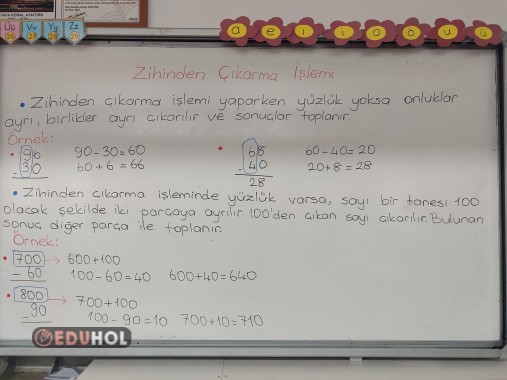 Üü Vv Yy Zz
26 27 28 29
a e ı i o ö u ü
Zihinden Çıkarma İşlemi
• Zihinden çıkarma işlemi yaparken yüzlük yoksa onluklar
ayrı, birlikler ayrı çıkarılır ve sonuçlar toplanır.
Örnek:
• 96 90-30=60 • 68 60-40=20
- 30 60+6=66 - 40 20+8=28
28
• Zihinden çıkarma işleminde yüzlük varsa, sayı bir tanesi 100
olacak şekilde iki parçaya ayrılır. 100'den çıkan sayı çıkarılır. Bulunan
sonuç diğer parça ile toplanır.
Örnek:
• 700 → 600+100
- 60 100-60=40 600+40=640
• 800 → 700+100
- 90 100-90=10 700+10=710
EDUHOL